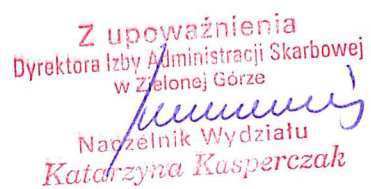 Z upoważnienia
Dyrektora Izby Administracji Skarbowej
w Zielonej Górze
Naczelnik Wydziału
Katarzyna Kasperczak